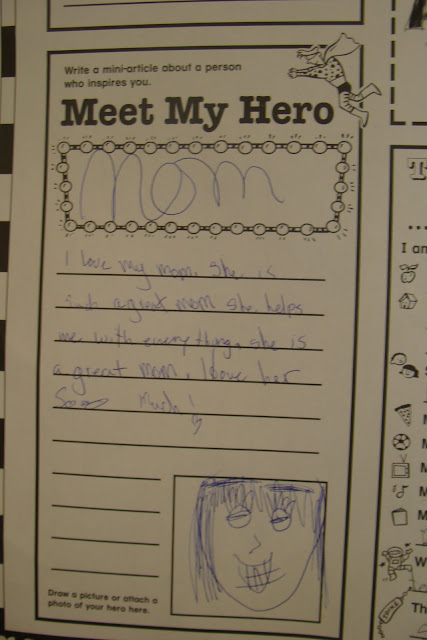 Write a mini-article about a person
who inspires you.
Meet My Hero
Mom
I love my mom. She is
such a great mom she helps
me with everything. she is
a great mom. I love her
Soooo Much!
Draw a picture or attach a
photo of your hero here.
T
I am
M
M
M
M
M
W
Th